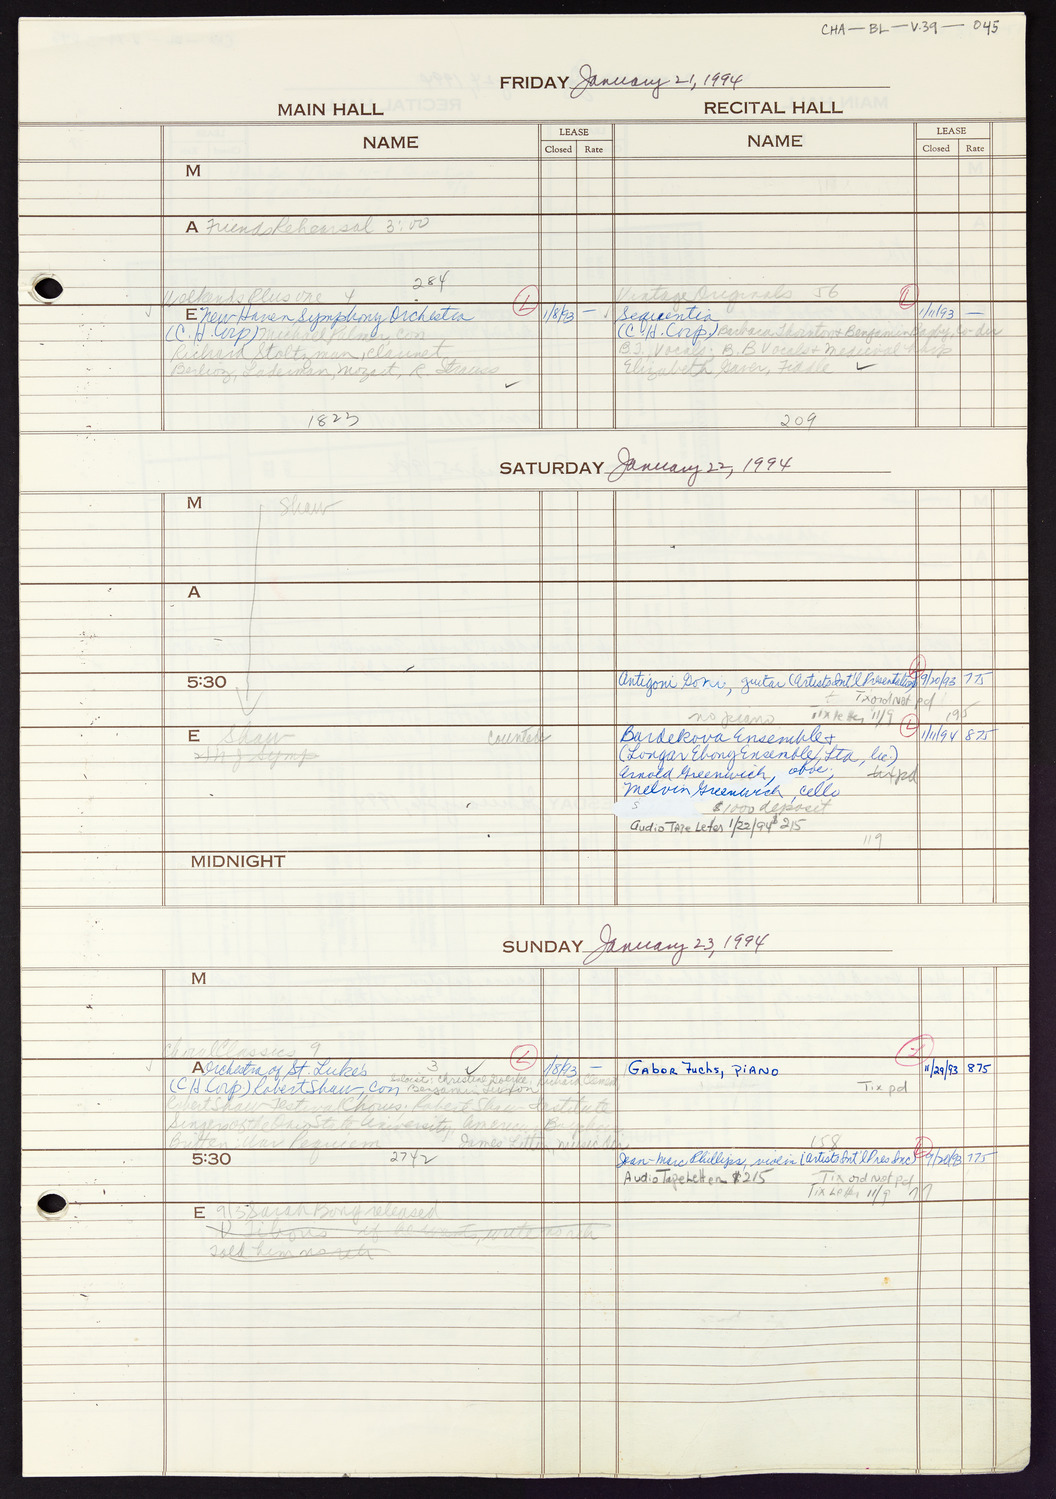 CHA-BL-V.39-045
FRIDAY January 21, 1994
MAIN HALL
RECITAL HALL
NAME
LEASE
Closed Rate
NAME
LEASE
Closed Rate
M
A Friends Rehearsal 3:00
284
Weekends Plus one 4
Vintage Originals 56
E New Haven Symphony Orchestra L 1/8/93 —
(C.H. Corp) Michael Palmer, con
Richard Stoltzman, clarinet
Berlioz, Laderman, Mozart, R. Strauss
1823
Sequentia L 1/11/93 —
(C.H. Corp) Barbara Thornton & Benjamin Bagby, co-dir
B.T. Vocals; B.B Vocals & Medieval harp
Elizabeth Gaver, Fiddle
209
SATURDAY January 22, 1994
M Shaw
A
5:30
Antigoni Goni, guitar (Artists Int'l Presentations L 9/20/93 775
Tix ord not pd
no piano Tix letter 11/9 195
E Shaw
N J Symp
Counter
Bardekova Ensemble + L 1/11/94 875
(Longar Ebony Ensemble, Ltd, Inc.)
Arnold Greenwich, oboe, tix pd
Melvin Greenwich, cello
$1000 deposit
Audio Tape Letter 1/22/94 $215
119
MIDNIGHT
SUNDAY January 23, 1994
M
Choral Classics 9
A Orchestra of St. Lukes 3 L 1/8/93 —
(C H Corp) Robert Shaw, con
Robert Shaw Festival Chorus; Robert Shaw Institute
Singers of the Ohio State University, American Boychoir
Britten: War Requiem
2742
Gabor Fuchs, PIANO L 11/29/93 875
Tix pd
158
5:30
Jean-Marc Phillips, violin (Artists Int'l Pres Inc) L 9/20/93 775
Audio Tape Letter $215 Tix ord not pd
Tix Letter 11/9 77
E 9/3 Sarah Bong released
if he wants, write no rels
sold him no rels